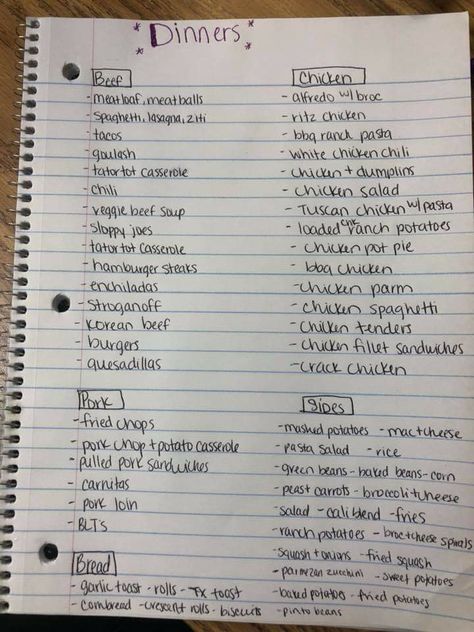 * Dinners *
Beef
- meatloaf, meatballs
- spaghetti, lasagna, ziti
- tacos
- goulash
- tator tot casserole
- chili
- veggie beef soup
- sloppy joes
- tator tot casserole
- hamburger steaks
- enchiladas
- stroganoff
- korean beef
- burgers
- quesadillas
Chicken
- alfredo w/ broc
- ritz chicken
- bbq ranch pasta
- white chicken chili
- chicken + dumplins
- chicken salad
- Tuscan chicken w/ pasta
- loaded chk ranch potatoes
- chicken pot pie
- bbq chicken
- chicken parm
- chicken spaghetti
- chicken tenders
- chicken fillet sandwiches
- crack chicken
Pork
- fried chops
- pork chop + potato casserole
- pulled pork sandwiches
- carnitas
- pork loin
- BLT's
Sides
- mashed potatoes - mac + cheese
- pasta salad - rice
- green beans - baked beans - corn
- peas + carrots - broccoli + cheese
- salad - cali blend - fries
- ranch potatoes - broc + cheese spirals
- squash + onions - fried squash
- parmezan zucchini - sweet potatoes
- baked potatoes - fried potatoes
- pinto beans
Bread
- garlic toast - rolls - Tx toast
- cornbread - crescent rolls - biscuits